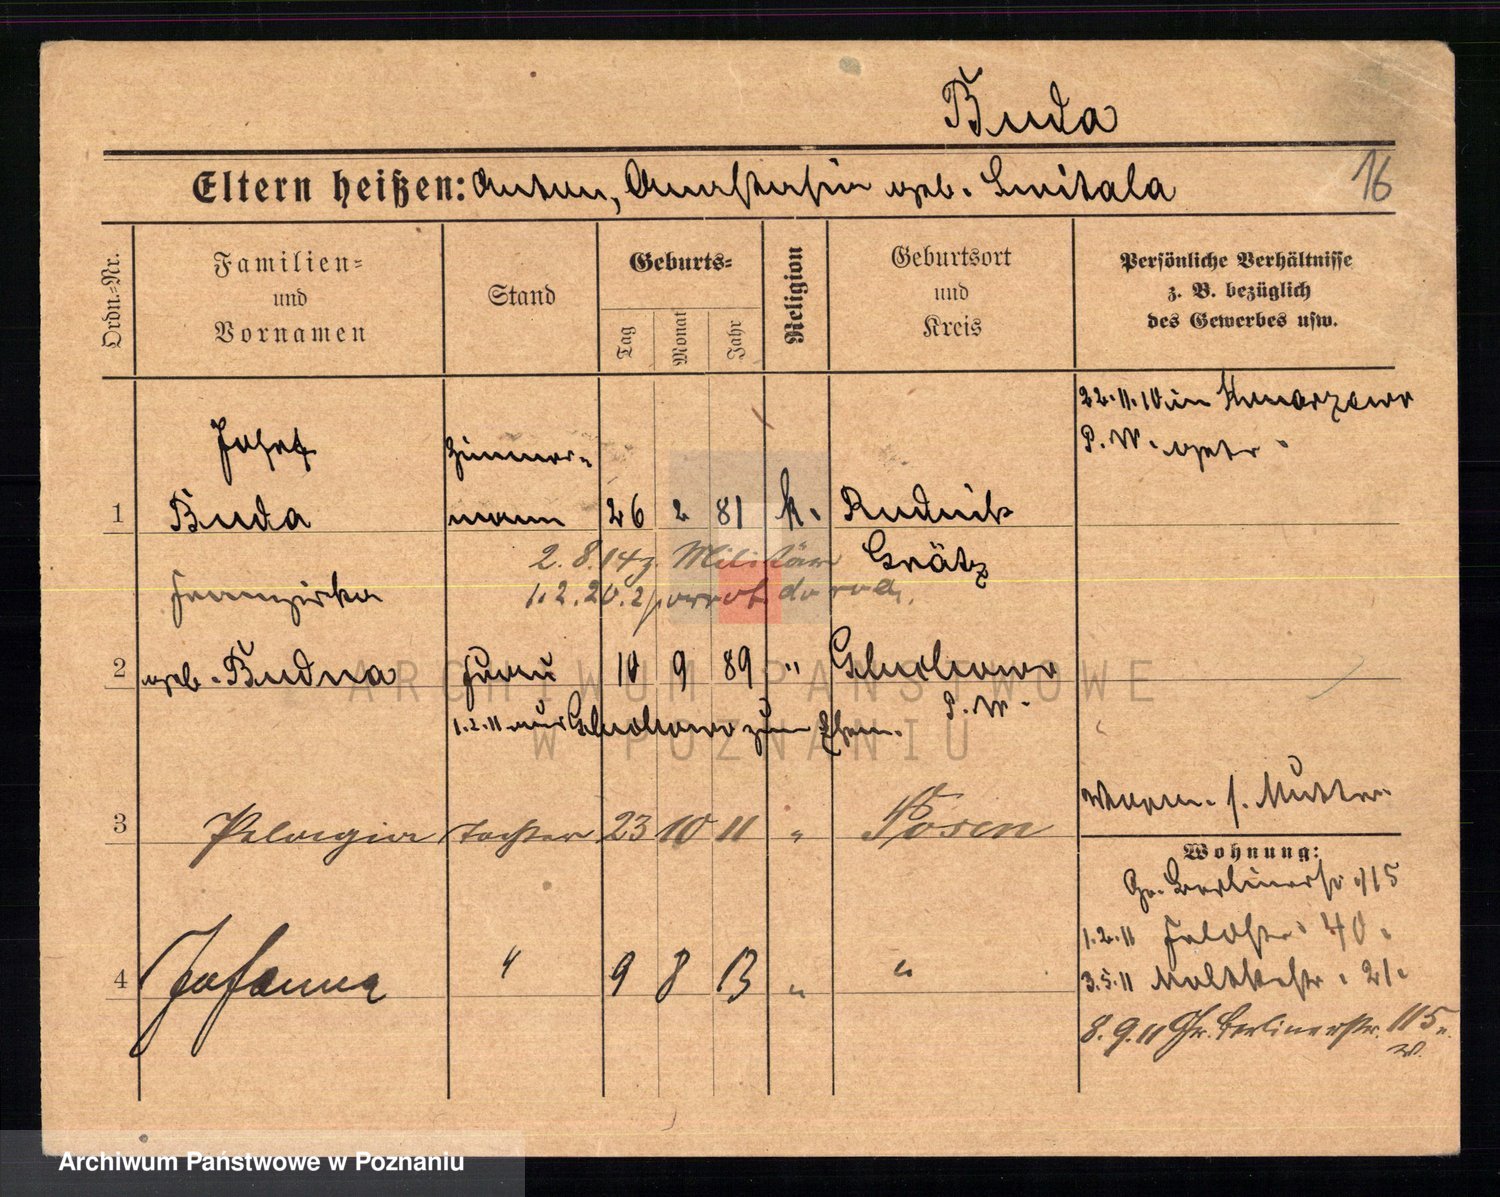 Buda
Eltern heißen: Anton, Anastasia geb. Smitala
16
Ordn.-Nr.
Familien-
und
Vornamen
Stand
Geburts-
Tag
Monat
Jahr
Religion
Geburtsort
und
Kreis
Persönliche Verhältnisse
z. B. bezüglich
des Gewerbes usw.
22.11.10 in
P. W. getr.
Josef
Zimmer-
1 Buda mann 26 2 81 k. Rudnik
Grätz
2.8.14 z. Militär
1.2.20. z
Franziska
2 geb. Budna Frau 10 9 89 " Gluchowo
P. W.
1.2.11 aus Gluchowo zum Ehem.
3 Pelagia Tochter 23 10 11 " Posen
Verm. s. Mutter
Wohnung:
Gr. Berlinerstr 115
1.2.11 Feldstr. 40.
4 Johanna " 9 8 13 " "
3.5.11 Moltkestr. 21.
8.9.11 Gr. Berlinerstr. 115
ARCHIWUM PAŃSTWOWE
W POZNANIU
Archiwum Państwowe w Poznaniu